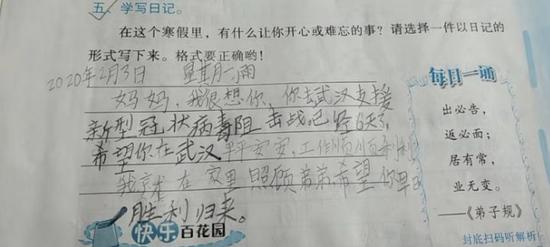 五、学写日记。
在这个寒假里，有什么让你开心或难忘的事？请选择一件以日记的
形式写下来。格式要正确哟！
2020年2月3日 星期一 雨
妈妈，我很想你，你去武汉支援
新型冠状病毒阻击战已经6天了，
希望你在武汉平平安安，工作顺顺利利
我 在家里照顾弟弟，希望你早日
胜利归来。
每日一诵
出必告，
返必面；
居有常，
业无变。
——《弟子规》
快乐百花园
封底扫码听解析